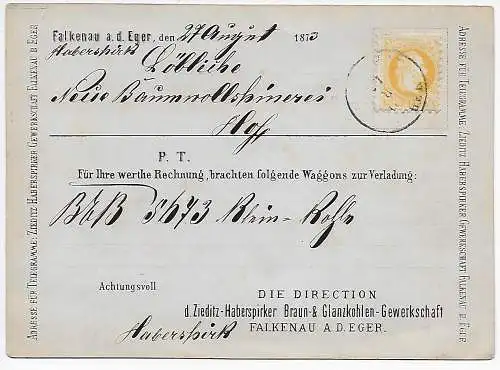 Falkenau a.d. Eger, den 27 August 1873
Haberspirk
Löbliche
Neue Baumwollspinerei
Hof
P. T.
Für Ihre werthe Rechnung, brachten folgende Waggons zur Verladung:
BEB 5673 Klein-Kohle
Achtungsvoll
DIE DIRECTION
d. Zieditz-Haberspirker Braun- & Glanzkohlen-Gewerkschaft
FALKENAU A.D. EGER.
Haberspirk
ADRESSE FÜR TELEGRAMME: ZIEDITZ HABERSPIRGER GEWERKSCHAFT FALKENAU B EGER
ADRESSE FÜR TELEGRAMME: ZIEDITZ HABERSPIRKER GEWERKSCHAFT FALKENAU B EGER